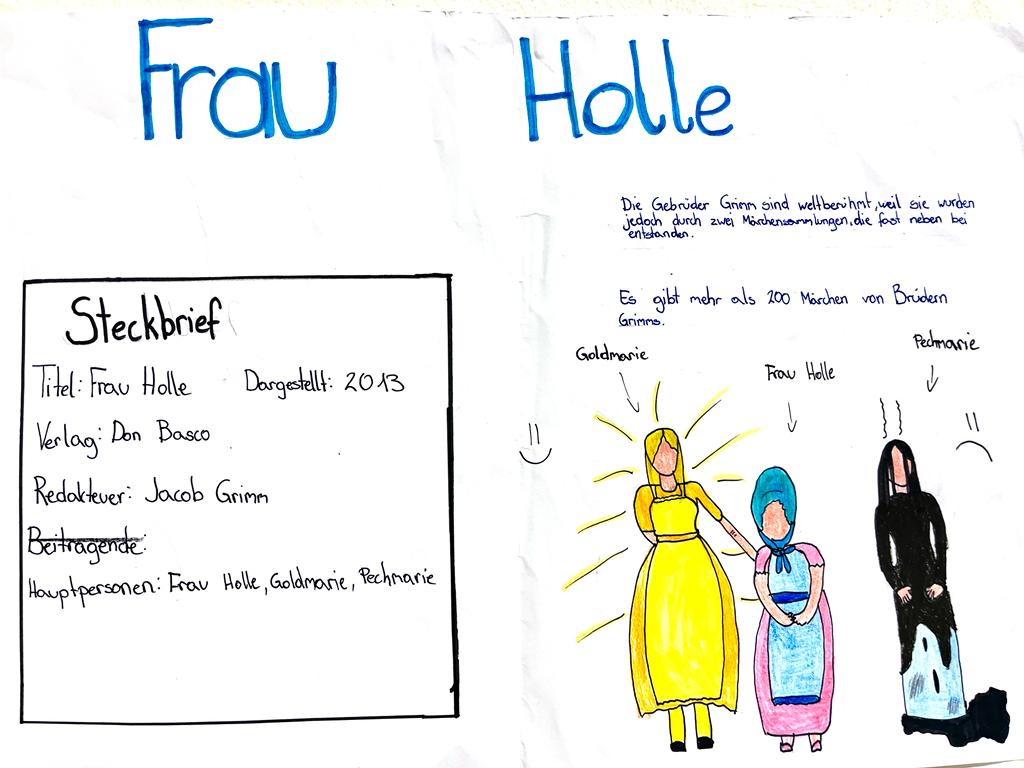 Frau Holle
Die Gebrüder Grimm sind weltberühmt, weil sie wurden
jedoch durch zwei Märchensammlungen, die fast neben bei
entstanden.
Es gibt mehr als 200 Märchen von Brüdern
Grimms.
Steckbrief
Titel: Frau Holle Dargestellt: 2013
Verlag: Don Basco
Redakteuer: Jacob Grimm
Beitragende:
Hauptpersonen: Frau Holle, Goldmarie, Pechmarie
Goldmarie
Frau Holle
Pechmarie